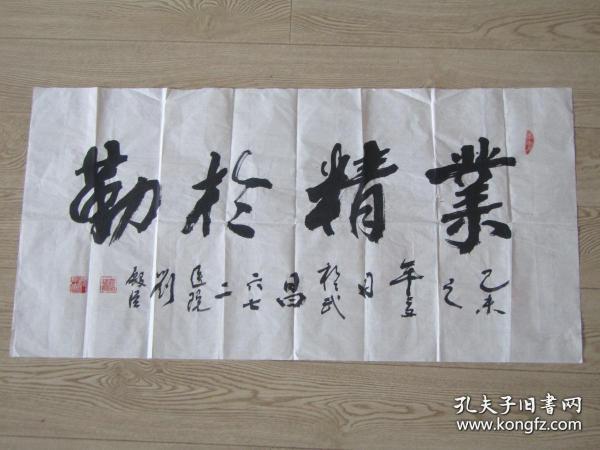 業精於勤
乙未之年立月於武昌六七二医院劉殿臣
孔夫子旧書网
www.kongfz.com